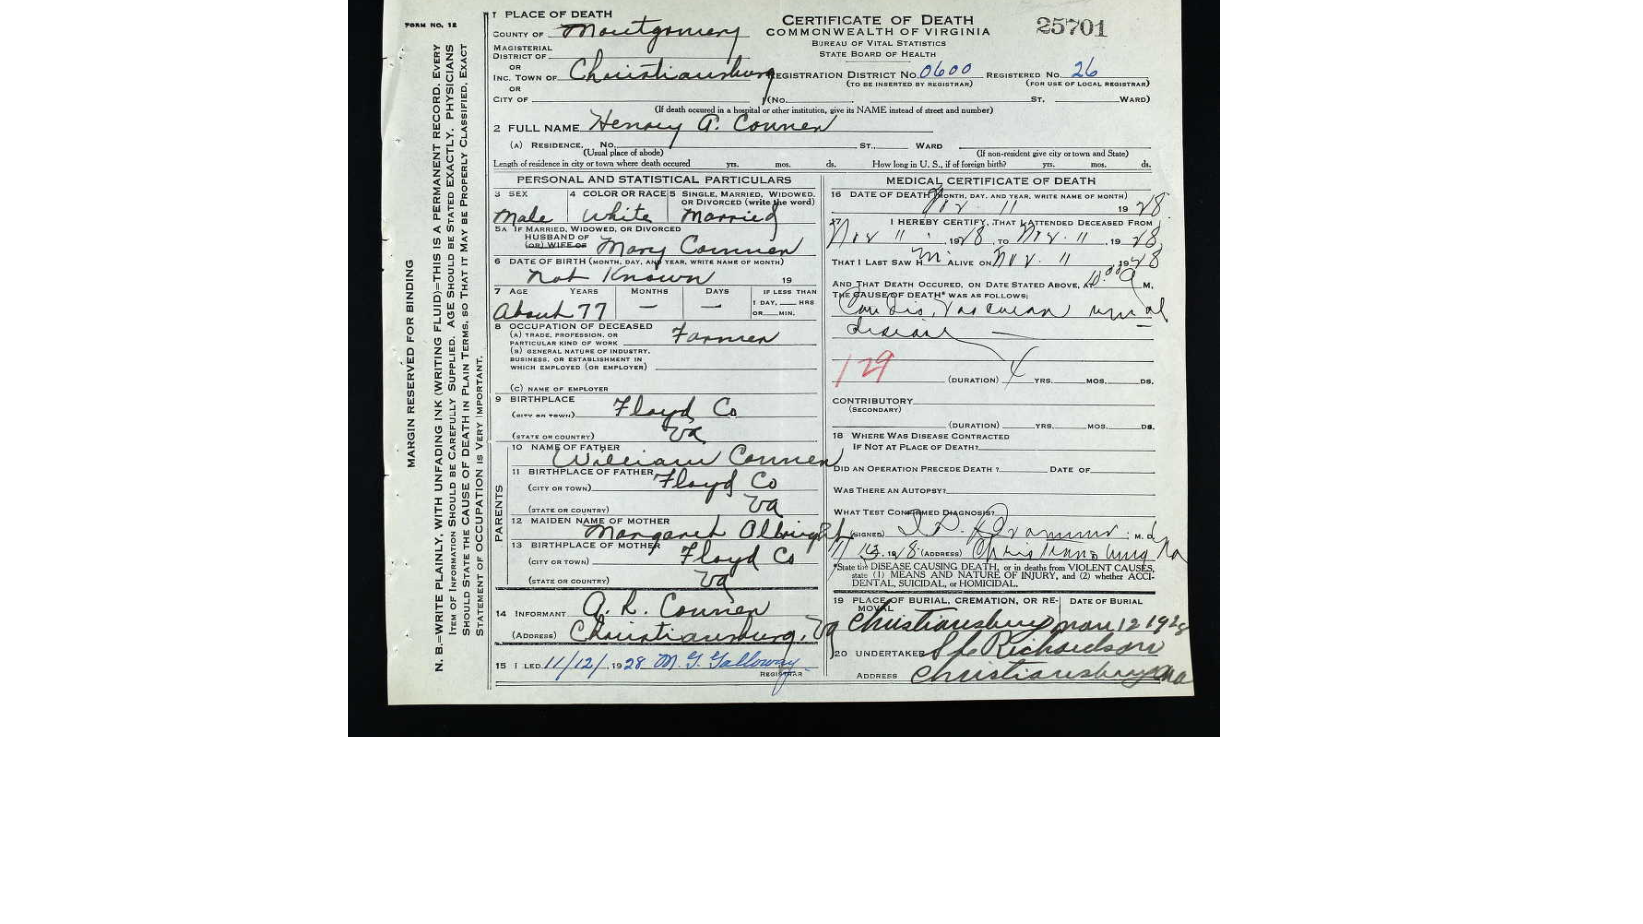 FORM NO. 12
1 PLACE OF DEATH
COUNTY OF Montgomery
MAGISTERIAL
DISTRICT OF
OR
INC. TOWN OF Christiansburg
OR
CITY OF
CERTIFICATE OF DEATH
COMMONWEALTH OF VIRGINIA
BUREAU OF VITAL STATISTICS
STATE BOARD OF HEALTH
25701
REGISTRATION DISTRICT NO. 0600 REGISTERED NO. 26
(TO BE INSERTED BY REGISTRAR) (FOR USE OF LOCAL REGISTRAR)
(NO. ST. WARD)
(If death occured in a hospital or other institution, give its NAME instead of street and number)
2 FULL NAME Henry A. Conner
(A) RESIDENCE. NO. ST., WARD
(Usual place of abode) (If non-resident give city or town and State)
Length of residence in city or town where death occured yrs. mos. ds. How long in U. S., if of foreign birth? yrs. mos. ds.
PERSONAL AND STATISTICAL PARTICULARS
3 SEX 4 COLOR OR RACE 5 SINGLE, MARRIED, WIDOWED, OR DIVORCED (write the word)
Male White Married
5A IF MARRIED, WIDOWED, OR DIVORCED
HUSBAND OF
(OR) WIFE OF Mary Conner
6 DATE OF BIRTH (MONTH, DAY, AND YEAR, WRITE NAME OF MONTH)
Not Known 19
7 AGE YEARS MONTHS DAYS IF LESS THAN
1 DAY, HRS
OR MIN.
About 77 — —
8 OCCUPATION OF DECEASED
(A) TRADE, PROFESSION, OR
PARTICULAR KIND OF WORK Farmer
(B) GENERAL NATURE OF INDUSTRY,
BUSINESS, OR ESTABLISHMENT IN
WHICH EMPLOYED (OR EMPLOYER)
(C) NAME OF EMPLOYER
9 BIRTHPLACE
(CITY OR TOWN) Floyd Co
(STATE OR COUNTRY) Va
PARENTS
10 NAME OF FATHER
William Conner
11 BIRTHPLACE OF FATHER
(CITY OR TOWN) Floyd Co
(STATE OR COUNTRY) Va
12 MAIDEN NAME OF MOTHER
Margaret Albright
13 BIRTHPLACE OF MOTHER
(CITY OR TOWN) Floyd Co
(STATE OR COUNTRY) Va
14 INFORMANT A. L. Conner
(ADDRESS) Christiansburg, Va
15 FILED 11/12/, 1928 M. G. Galloway
REGISTRAR
MEDICAL CERTIFICATE OF DEATH
16 DATE OF DEATH (MONTH, DAY, AND YEAR, WRITE NAME OF MONTH)
Nov. 11 1928
17 I HEREBY CERTIFY, THAT I ATTENDED DECEASED FROM
Nov 11, 1928, TO Nov. 11, 1928,
THAT I LAST SAW H im ALIVE ON Nov. 11, 1928
AND THAT DEATH OCCURED, ON DATE STATED ABOVE, AT 10.00 a M.
THE CAUSE OF DEATH* WAS AS FOLLOWS:
Cardio, Vascular renal
disease
129
(DURATION) 4 YRS. MOS. DS.
CONTRIBUTORY
(SECONDARY)
(DURATION) YRS. MOS. DS.
18 WHERE WAS DISEASE CONTRACTED
IF NOT AT PLACE OF DEATH?
DID AN OPERATION PRECEDE DEATH? DATE OF
WAS THERE AN AUTOPSY?
WHAT TEST CONFIRMED DIAGNOSIS?
(SIGNED) M. D.
(ADDRESS) Christiansburg Va
*State the DISEASE CAUSING DEATH, or in deaths from VIOLENT CAUSES,
state (1) MEANS AND NATURE OF INJURY, and (2) whether ACCI-
DENTAL, SUICIDAL, or HOMICIDAL.
19 PLACE OF BURIAL, CREMATION, OR RE- DATE OF BURIAL
MOVAL
Christiansburg Nov 12 1928
20 UNDERTAKER Richardson
ADDRESS Christiansburg Va
MARGIN RESERVED FOR BINDING
N. B.—WRITE PLAINLY, WITH UNFADING INK (WRITING FLUID)—THIS IS A PERMANENT RECORD. EVERY
ITEM OF INFORMATION SHOULD BE CAREFULLY SUPPLIED. AGE SHOULD BE STATED EXACTLY. PHYSICIANS
SHOULD STATE THE CAUSE OF DEATH IN PLAIN TERMS, SO THAT IT MAY BE PROPERLY CLASSIFIED. EXACT
STATEMENT OF OCCUPATION IS VERY IMPORTANT.